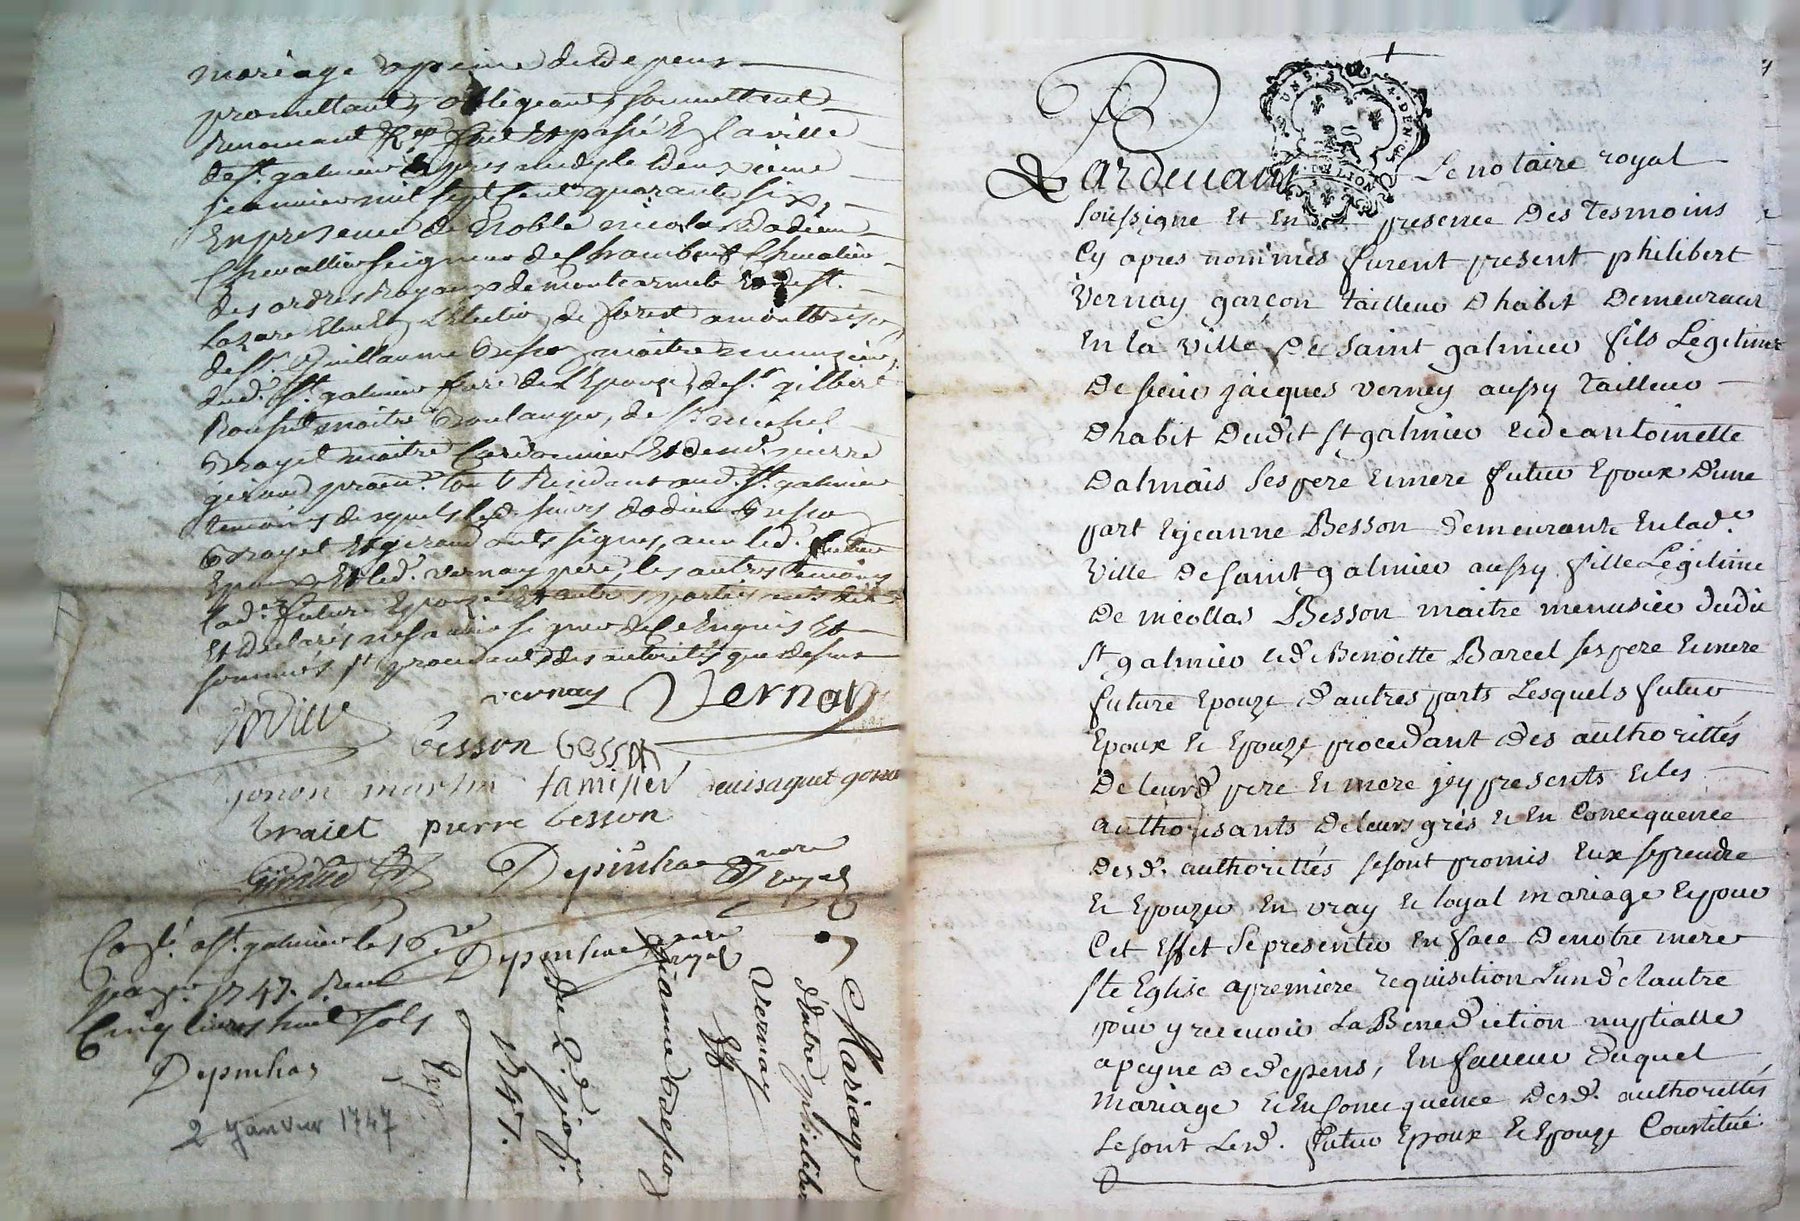 mariage a peine de de depens
promettants obligeants soumettant
Renonceant &c fait Et passé En la ville
de st. galmier apres midy le deuxieme
jeanvier mil sept cent quarante six,
En presence de Noble nicolas Dodieu
Chevallier seigneur de Chambeuf Chevalier
des ordres Royaux de montcarmel Et de st.
Lazare Eleu En L'Election de forest a montbrison
de sr. Guillaume Besson maitre menuzier
dud. st. galmier frere de L'Epouze, de sr. gilbert
maitre Boulanger, de sr. michel
Brayet maitre Cordonnier Et de mr. pierre
giraud procur. tous Residant aud. st. galmier
temoins desquels led. sieurs dodieu Besson
Brayet Et giraud onts signes, avec led. futeur
Epoux Et led. vernay pere, les autres temoins
lad. future Epouze Et autres parties n'ont
Et declarés ne savoir signer de ce Enquis Et
sommes st. procedant des autorités que dessus
Dodieu vernay Vernay
besson besson
gonon martin tamisier
braiet pierre besson
Giraud Depinhac nore royal
Conlé. a st. galmier le 16e
janv. 1747. Reçu
Cinq livres huit sols
Depinhac
Depinhac nore royal
2 janvier 1747
Exp.
Mariage
d'Entre philibert
Vernay
Et
jeanne Besson
du 2.e janv.
1747.
Pardevant Le notaire royal
soussigné Et En presence Des Tesmoins
Cy apres nommés furent present philibert
Vernay garçon tailleur Dhabit Demeurant
En la ville De Saint galmier fils Legitime
De sieur jacques verney aussy Tailleur
Dhabit Dudit st galmier Et de antoinette
Dalmais ses pere Et mere futur Epoux D'une
part Et jeanne Besson demeurante En lad.e
Ville De saint galmier aussy fille Legitime
De nicollas Besson maitre menusier dudit
st galmier Et de Benoitte Barcel ses pere Et mere
future Epouze d'autres parts Lesquels futur
Epoux Et Epouze procedant des authorittés
De leurd pere Et mere jcy presents Et les
authorisants De leurs grés Et En Conecquence
Desd. authorittés se sont promis Eux se prendre
Et Epouzer En vray Et loyal mariage Et pour
Cet Effet se presenter En face De notre mere
ste Eglise a premiere requisition L'un d'elautre
pour y recevoir La Benediction nuptialle
a peyne de depens, En faveur Duquel
mariage Et En Conecquence Desd. authorittés
se sont Lesd. futur Epoux Et Epouze Constitué